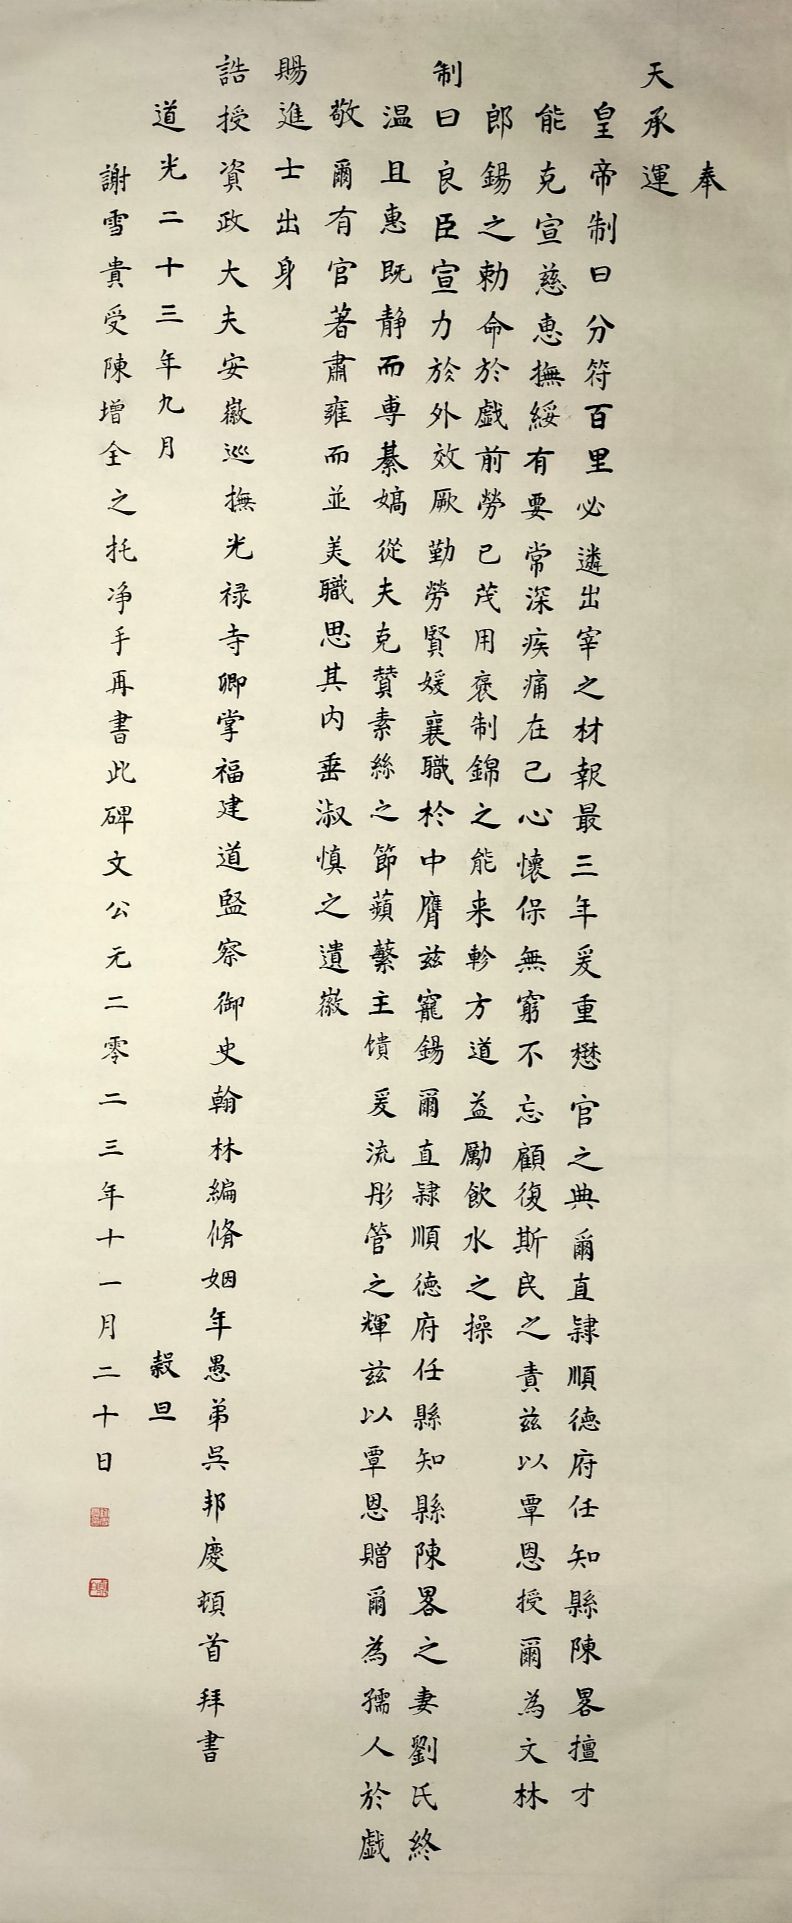 奉
天承運
皇帝制曰分符百里必遴出宰之材報最三年爰重懋官之典爾直隸順德府任知縣陳畧擅才
能克宣慈惠撫綏有要常深疾痛在己心懷保無窮不忘顧復斯民之責茲以覃恩授爾為文林
郎錫之勅命於戲前勞已茂用褒制錦之能来軫方道益勵飲水之操
制曰良臣宣力於外效厥勤勞賢媛襄職於中膺茲寵錫爾直隸順德府任縣知縣陳畧之妻劉氏終
温且惠既静而専綦嫡從夫克贊素絲之節蘋蘩主馈爰流彤管之輝茲以覃恩贈爾為孺人於戲
敬爾有官著肅雍而並美職思其内垂淑慎之遺徽
賜進士出身
誥授資政大夫安徽巡撫光禄寺卿掌福建道監察御史翰林編脩姻年愚弟吳邦慶頓首拜書
道光二十三年九月 穀旦
謝雪貴受陳增全之托净手再書此碑文公元二零二三年十一月二十日